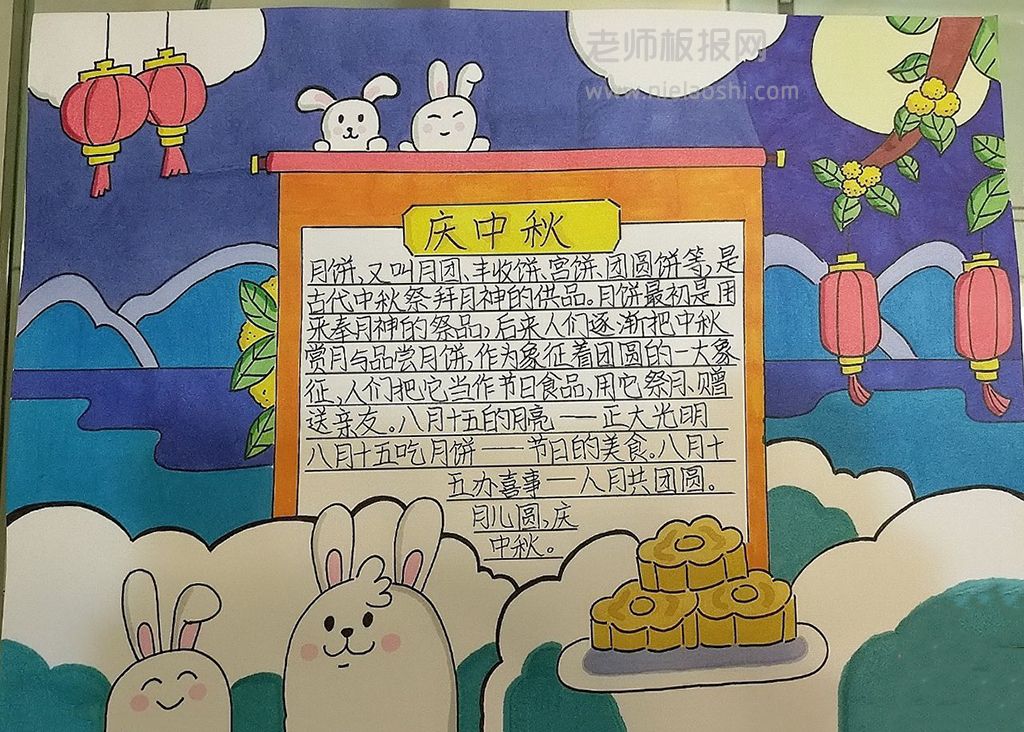 老师板报网
www.nielaoshi.com
庆中秋
月饼、又叫月团、丰收饼、宫饼、团圆饼等,是
古代中秋祭拜月神的供品。月饼最初是用
来奉月神的祭品,后来人们逐渐把中秋
赏月与品尝月饼,作为象征着团圆的一大象
征,人们把它当作节日食品,用它祭月、赠
送亲友。八月十五的月亮——正大光明
八月十五吃月饼——节日的美食。八月十
五办喜事——人月共团圆。
月儿圆,庆
中秋。